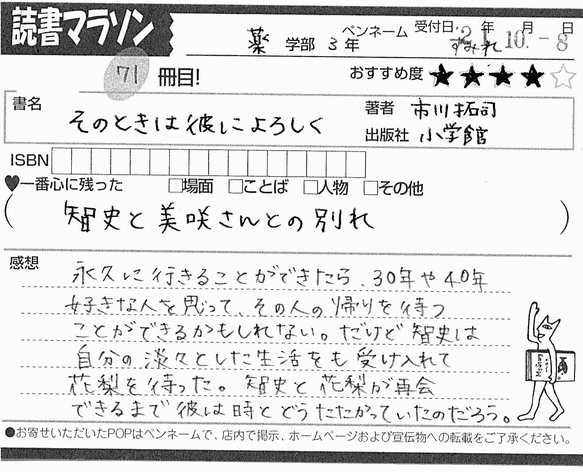 読書マラソン
薬 学部 3 年 ペンネーム すみれ 受付日: 21年 10月 -8日
71 冊目! おすすめ度 ★★★★☆
書名 そのときは彼によろしく
著者 市川拓司
出版社 小学館
ISBN
♥一番心に残った □場面 □ことば □人物 □その他
(智史と美咲さんとの別れ)
感想
永久に行きることができたら、30年や40年
好きな人を思って、その人の帰りを待つ
ことができるかもしれない。だけど智史は
自分の淡々とした生活をも受け入れて
花梨を待った。智史と花梨が再会
できるまで彼は時とどうたたかっていたのだろう。
●お寄せいただいたPOPはペンネームで、店内で掲示、ホームページおよび宣伝物への転載をご了承ください。